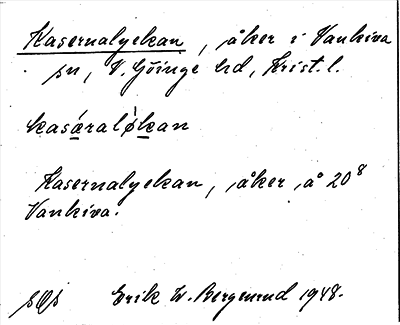 Kasernalyckan, åker i Vankiva
sn, V. Göinge hd, Krist. l.
kasäralỳkan
Kasernalyckan, åker å 20⁸
Vankiva.
Erik W. Bergmund 1948.